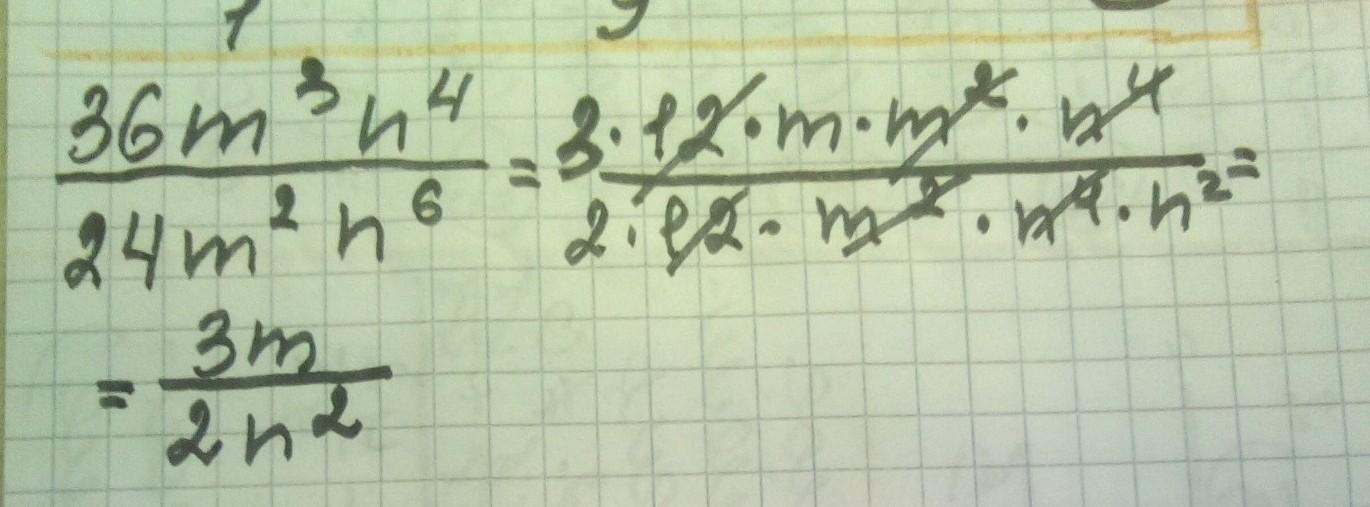 36m³n⁴/24m²n⁶ = 3·12·m·m²·n⁴/2·12·m²·n⁴·n² =
= 3m/2n²